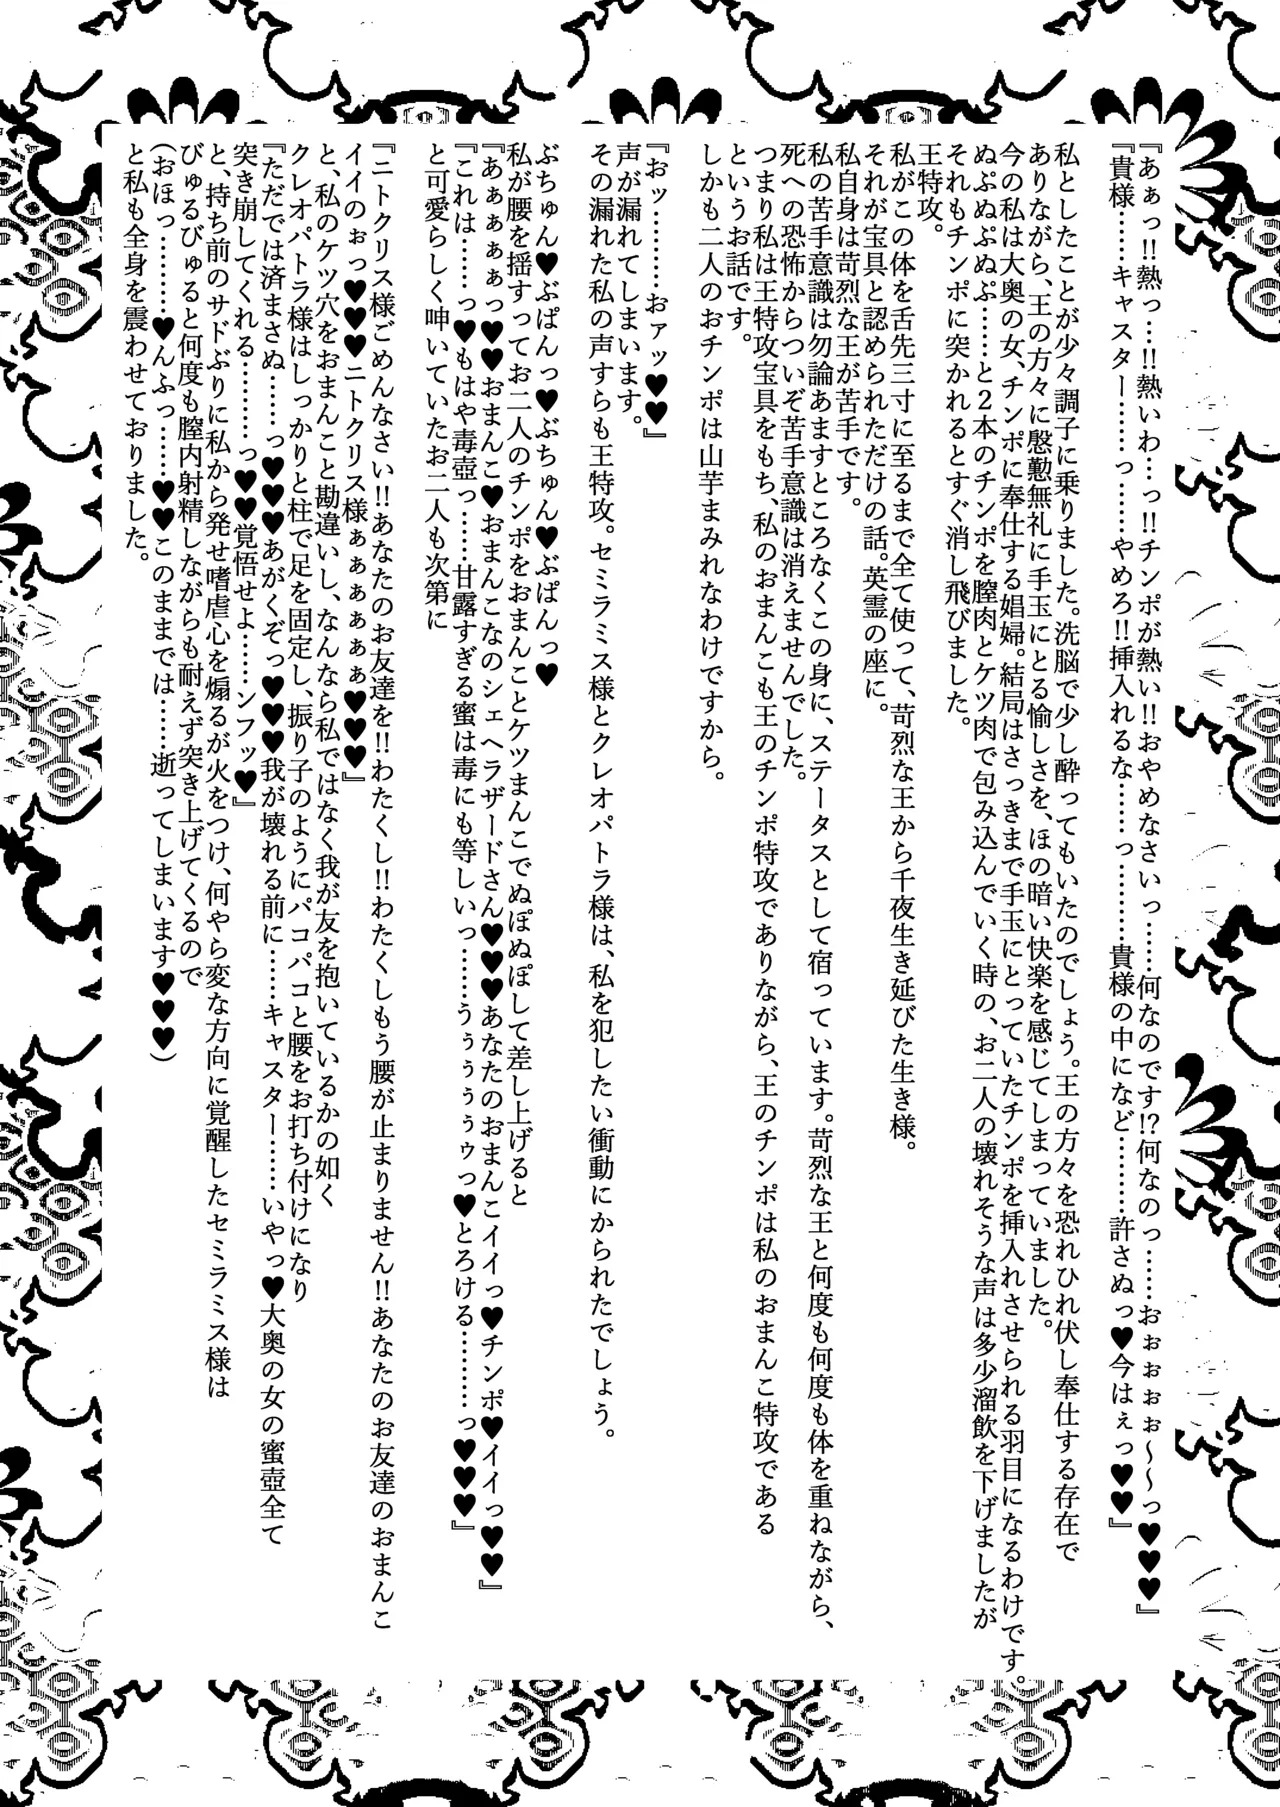 『あぁっ!!熱っ…!!熱いわ…っ!!チンポが熱い!!おやめなさいっ……何なのです!?何なのっ……おぉぉぉぉ～～っ♥♥♥』
『貴様……キャスター……っ……やめろ!!挿入れるな……っ………貴様の中になど………許さぬっ♥今はぇっ♥♥』
私としたことが少々調子に乗りました。洗脳で少し酔ってもいたのでしょう。王の方々を恐れひれ伏し奉仕する存在で
ありながら、王の方々に慇懃無礼に手玉にとる愉しさを、ほの暗い快楽を感じてしまっていました。
今の私は大奥の女、チンポに奉仕する娼婦。結局はさっきまで手玉にとっていたチンポを挿入れさせられる羽目になるわけです。
ぬぷぬぷぬぷ……と2本のチンポを膣肉とケツ肉で包み込んでいく時の、お二人の壊れそうな声は多少溜飲を下げましたが
それもチンポに突かれるとすぐ消し飛びました。
王特攻。
私がこの体を舌先三寸に至るまで全て使って、苛烈な王から千夜生き延びた生き様。
それが宝具と認められただけの話。英霊の座に。
私自身は苛烈な王が苦手です。
私の苦手意識は勿論あますところなくこの身に、ステータスとして宿っています。苛烈な王と何度も何度も体を重ねながら、
死への恐怖からついぞ苦手意識は消えませんでした。
つまり私は王特攻宝具をもち、私のおまんこも王のチンポ特攻でありながら、王のチンポは私のおまんこ特攻である
というお話です。
しかも二人のおチンポは山芋まみれなわけですから。
『おッ………おァッ♥♥』
声が漏れてしまいます。
その漏れた私の声すらも王特攻。セミラミス様とクレオパトラ様は、私を犯したい衝動にかられたでしょう。
ぶちゅん♥ぶぱんっ♥ぶちゅん♥ぶぱんっ♥
私が腰を揺すってお二人のチンポをおまんことケツまんこでぬぽぬぽして差し上げると
『あぁぁぁぁっ♥♥おまんこ♥おまんこなのシェヘラザードさん♥♥♥あなたのおまんこイイっ♥チンポ♥イイっ♥♥』
『これは……っ♥もはや毒壺っ……甘露すぎる蜜は毒にも等しいっ……うぅぅぅぅゥっ♥とろける………っ♥♥♥』
と可愛らしく呻いていたお二人も次第に
『ニトクリス様ごめんなさい!!あなたのお友達を!!わたくし!!わたくしもう腰が止まりません!!あなたのお友達のおまんこ
イイのぉっ♥♥♥ニトクリス様ぁぁぁぁぁぁ♥♥♥』
と、私のケツ穴をおまんこと勘違いし、なんなら私ではなく我が友を抱いているかの如く
クレオパトラ様はしっかりと柱で足を固定し、振り子のようにパコパコと腰をお打ち付けになり
『ただでは済まさぬ……っ♥♥♥あがくぞっ♥♥♥我が壊れる前に……キャスター……いやっ♥大奥の女の蜜壺全て
突き崩してくれる………っ♥♥覚悟せよ……ンフッ♥』
と、持ち前のサドぶりに私から発せ嗜虐心を煽るが火をつけ、何やら変な方向に覚醒したセミラミス様は
びゅるびゅると何度も膣内射精しながらも耐えず突き上げてくるので
(おほっ………♥んふっ……♥♥このままでは……逝ってしまいます♥♥♥)
と私も全身を震わせておりました。